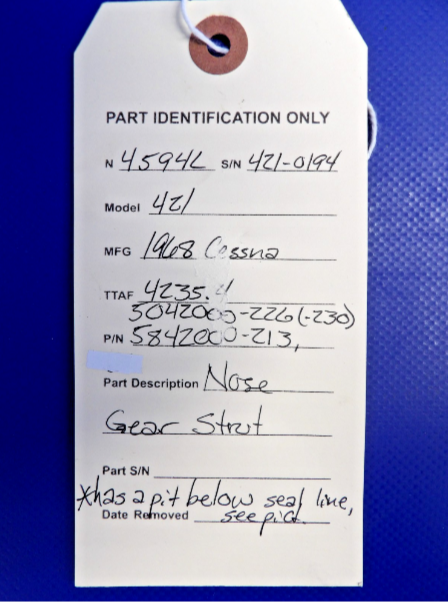 PART IDENTIFICATION ONLY
N 4594L S/N 421-0194
Model 421
MFG 1968 Cessna
TTAF 4235.4
5042000-226(-230)
P/N 5842000-213,
Part Description Nose
Gear Strut
Part S/N
*has a pit below seal line,
Date Removed see pic.